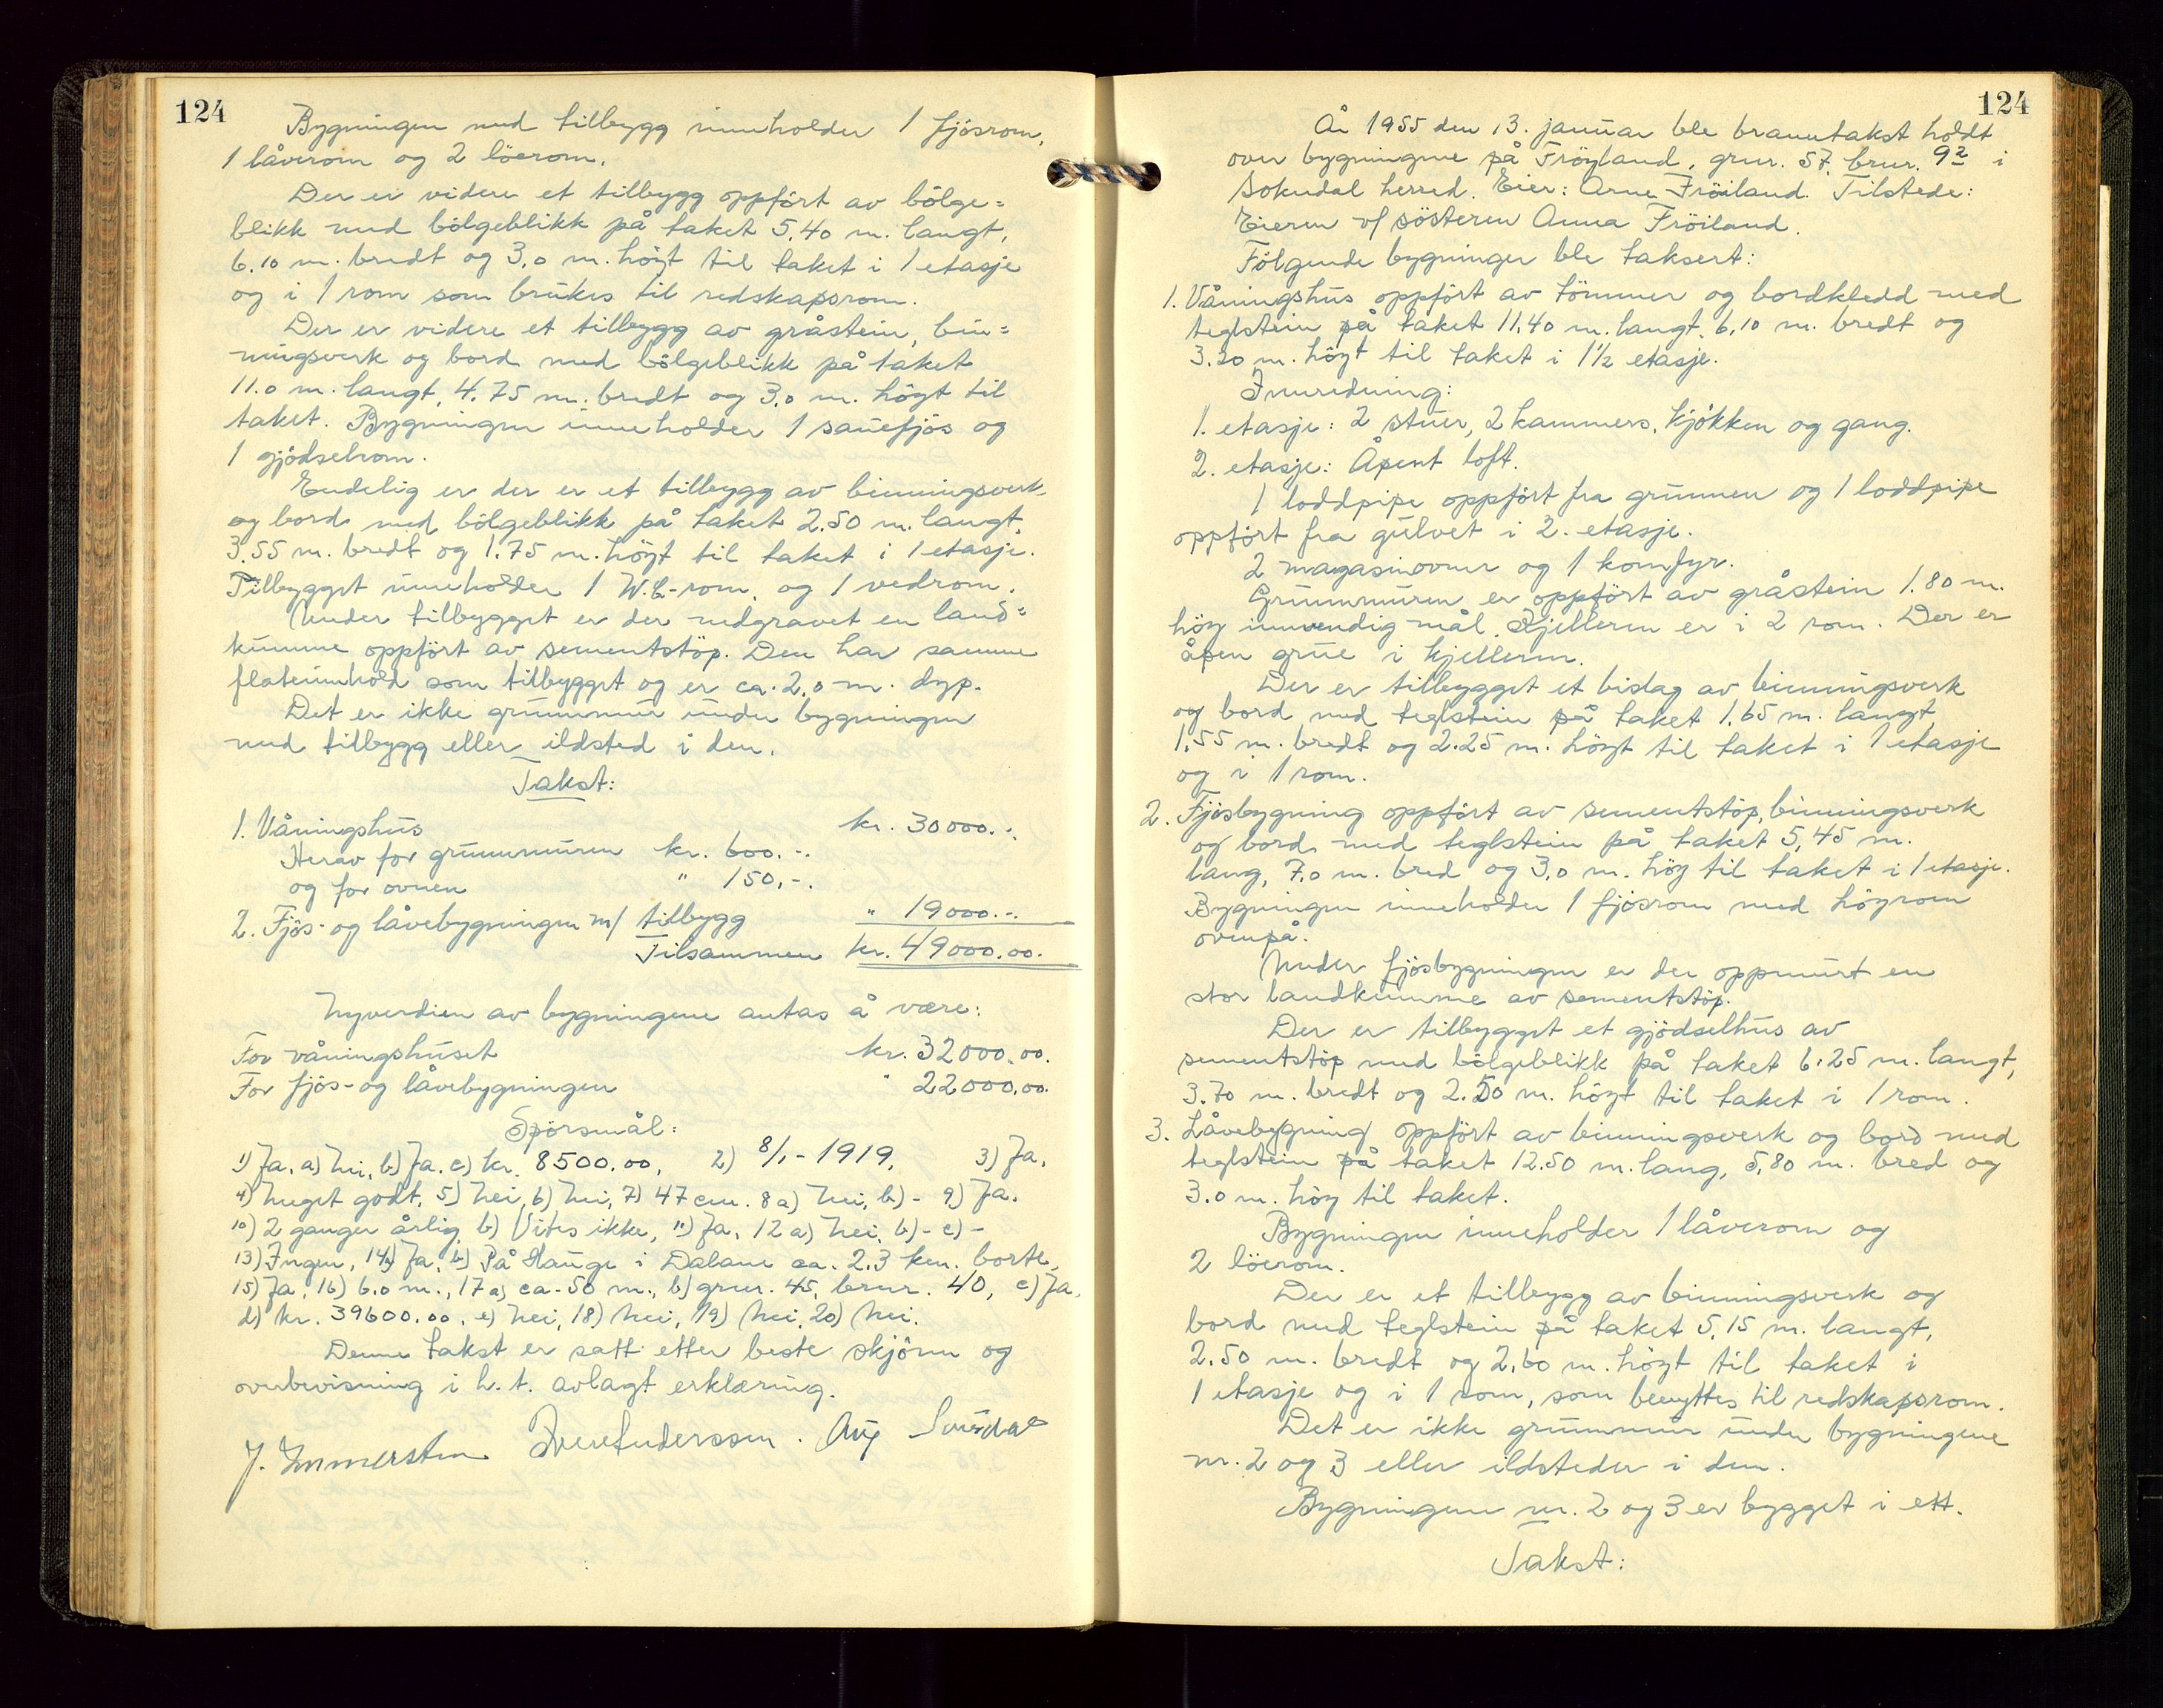 124
Bygningen med tilbygg inneholder 1 fjösrom,
1 låverom og 2 löerom.
Der er videre et tilbygg oppfört av bölge=
blikk med bölgeblikk på taket 5.40 m. langt,
6.10 m. bredt og 3.0 m. högt til taket i 1 etasje
og i 1 rom som brukes til redskapsrom.
Der er videre et tilbygg av gråstein, bin=
ningsverk og bord med bölgeblikk på taket
11.0 m. langt, 4.75 m. bredt og 3.0 m. högt til
taket. Bygningen inneholder 1 sauefjös og
1 gjödselrom.
Endelig er der er et tilbygg av binningsverk
og bord med bölgeblikk på taket 2.50 m. langt,
3.55 m. bredt og 1.75 m. högt til taket i 1 etasje.
Tilbygget inneholder 1 W.C-rom, og 1 vedrom.
Under tilbygget er der nedgravet en land=
kumme oppfört av sementstöp. Den har samme
flateinnhold som tilbygget og er ca. 2.0 m. dyp.
Det er ikke grunnmur under bygningen
med tilbygg eller ildsted i den.
Takst:
1. Våningshus kr. 30000.-.
Herav for grunnmuren kr. 600.-.
og for ovnen " 150,-.
2. Fjös- og låvebygningen m/ tilbygg " 19000.-.
Tilsammen kr. 49000.00.
Nyverdien av bygningene antas å være:
For våningshuset kr. 32000.00.
For fjös- og låvebygningen " 22000.00.
Spörsmål:
1) Ja. a) Nei, b) Ja. c) kr. 8500.00, 2) 8/1 - 1919, 3) Ja.
4) Meget godt, 5) Nei, 6) Nei, 7) 47 cm. 8 a) Nei, b) - 9) Ja.
10) 2 ganger årlig, b) Vites ikke, 11) Ja, 12 a) Nei, b) - c) -
13) Ingen, 14a) Ja, b) På Hauge i Dalane ca. 2.3 km. borte,
15) Ja, 16) 6.0 m., 17 a) ca. 50 m., b) grnr. 45, brnr. 40, c) Ja,
d) kr. 39600.00. e) Nei, 18) Nei, 19) Nei, 20) Nei.
Denne takst er satt etter beste skjönn og
overbevisning i h. t. avlagt erklæring.
J. Emmersten Sven Anderssen. Aug
124
År 1955 den 13. januar ble branntakst holdt
over bygningene på Fröyland, grnr. 57. brnr. 92 i
Sokndal herred. Eier: Arne Fröiland. Tilstede:
Eieren v/ sösteren Anna Fröiland.
Fölgende bygninger ble taksert:
1. Våningshus oppfört av tömmer og bordkledd med
teglstein på taket 11.40 m. langt, 6.10 m. bredt og
3.20 m. högt til taket i 1 1/2 etasje.
Innredning:
1. etasje: 2 stuer, 2 kammers, kjökken og gang.
2. etasje: Åpent loft.
1 loddpipe oppfört fra grunnen og 1 loddpipe
oppfört fra gulvet i 2. etasje.
2 magasinovner og 1 komfyr.
Grunnmuren er oppfört av gråstein 1.80 m.
hög innvendig mål. Kjelleren er i 2 rom. Der er
åpen grue i kjelleren.
Der er tilbygget et bislag av binningsverk
og bord med teglstein på taket 1.65 m. langt,
1.55 m. bredt og 2.25 m. högt til taket i 1 etasje
og i 1 rom.
2. Fjösbygning oppfört av sementstöp, binningsverk
og bord med teglstein på taket 5,45 m.
lang, 7.0 m. bred og 3.0 m. hög til taket i 1 etasje.
Bygningen inneholder 1 fjösrom med höyrom
ovenpå.
Under fjösbygningen er der oppmurt en
stor landkumme av sementstöp.
Der er tilbygget et gjödselhus av
sementstöp med bölgeblikk på taket 6.25 m. langt,
3.70 m. bredt og 2.50 m. högt til taket i 1 rom.
3. Låvebygning oppfört av binningsverk og bord med
teglstein på taket 12.50 m. lang, 5.80 m. bred og
3.0 m. hög til taket.
Bygningen inneholder 1 låverom og
2 löerom.
Der er et tilbygg av binningsverk og
bord med teglstein på taket 5.15 m. langt,
2.50 m. bredt og 2.60 m. högt til taket i
1 etasje og i 1 rom, som benyttes til redskapsrom.
Det er ikke grunnmur under bygningene
nr. 2 og 3 eller ildsteder i den.
Bygningene nr. 2 og 3 er bygget i ett.
Takst: